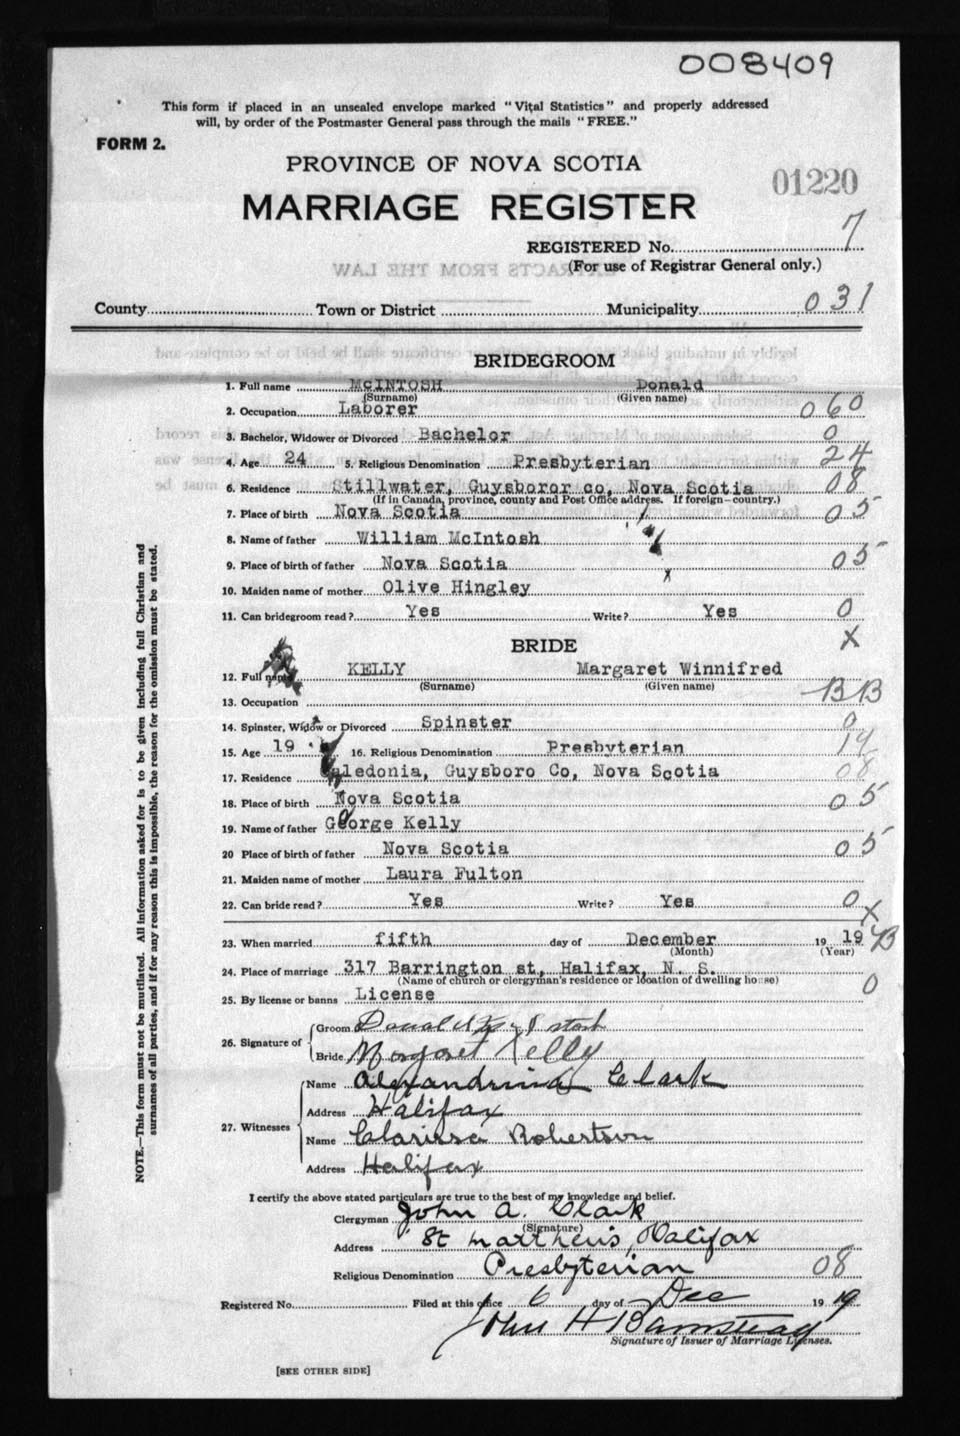 008409
This form if placed in an unsealed envelope marked "Vital Statistics" and properly addressed
will, by order of the Postmaster General pass through the mails "FREE."
FORM 2.
PROVINCE OF NOVA SCOTIA
01220
MARRIAGE REGISTER
REGISTERED No. 7
(For use of Registrar General only.)
County Town or District Municipality 031
BRIDEGROOM
1. Full name McINTOSH Donald
(Surname) (Given name)
2. Occupation Laborer 060
3. Bachelor, Widower or Divorced Bachelor 0
4. Age 24 5. Religious Denomination Presbyterian 24
6. Residence Stillwater, Guysboror co, Nova Scotia 08
(If in Canada, province, county and Post Office address. If foreign—country.)
7. Place of birth Nova Scotia 05
8. Name of father William McIntosh
9. Place of birth of father Nova Scotia 05
10. Maiden name of mother Olive Hingley x
11. Can bridegroom read? Yes Write? Yes 0
BRIDE X
12. Full name KELLY Margaret Winnifred
(Surname) (Given name)
13. Occupation BB
14. Spinster, Widow or Divorced Spinster 0
15. Age 19 16. Religious Denomination Presbyterian 19
17. Residence Caledonia, Guysboro Co, Nova Scotia 08
18. Place of birth Nova Scotia 05
19. Name of father George Kelly
20 Place of birth of father Nova Scotia 05
21. Maiden name of mother Laura Fulton
22. Can bride read? Yes Write? Yes 0
X
23. When married fifth day of December 19 19
(Month) (Year)
24. Place of marriage 317 Barrington st, Halifax, N. S.
(Name of church or clergyman's residence or location of dwelling house) 0
25. By license or banns License
26. Signature of
Groom Donald
Bride Margaret Kelly
27. Witnesses
Name Alexandrina Clark
Address Halifax
Name Clarissa Robertson
Address Halifax
I certify the above stated particulars are true to the best of my knowledge and belief.
Clergyman John A. Clark
(Signature)
Address St Matthew's, Halifax
Religious Denomination Presbyterian 08
Registered No. Filed at this office 6 day of Dec 19 19
John H Barnstead
Signature of Issuer of Marriage Licenses.
[SEE OTHER SIDE]
NOTE.—This form must not be mutilated. All information asked for is to be given including full Christian and
surnames of all parties, and if for any reason this is impossible, the reason for the omission must be stated.